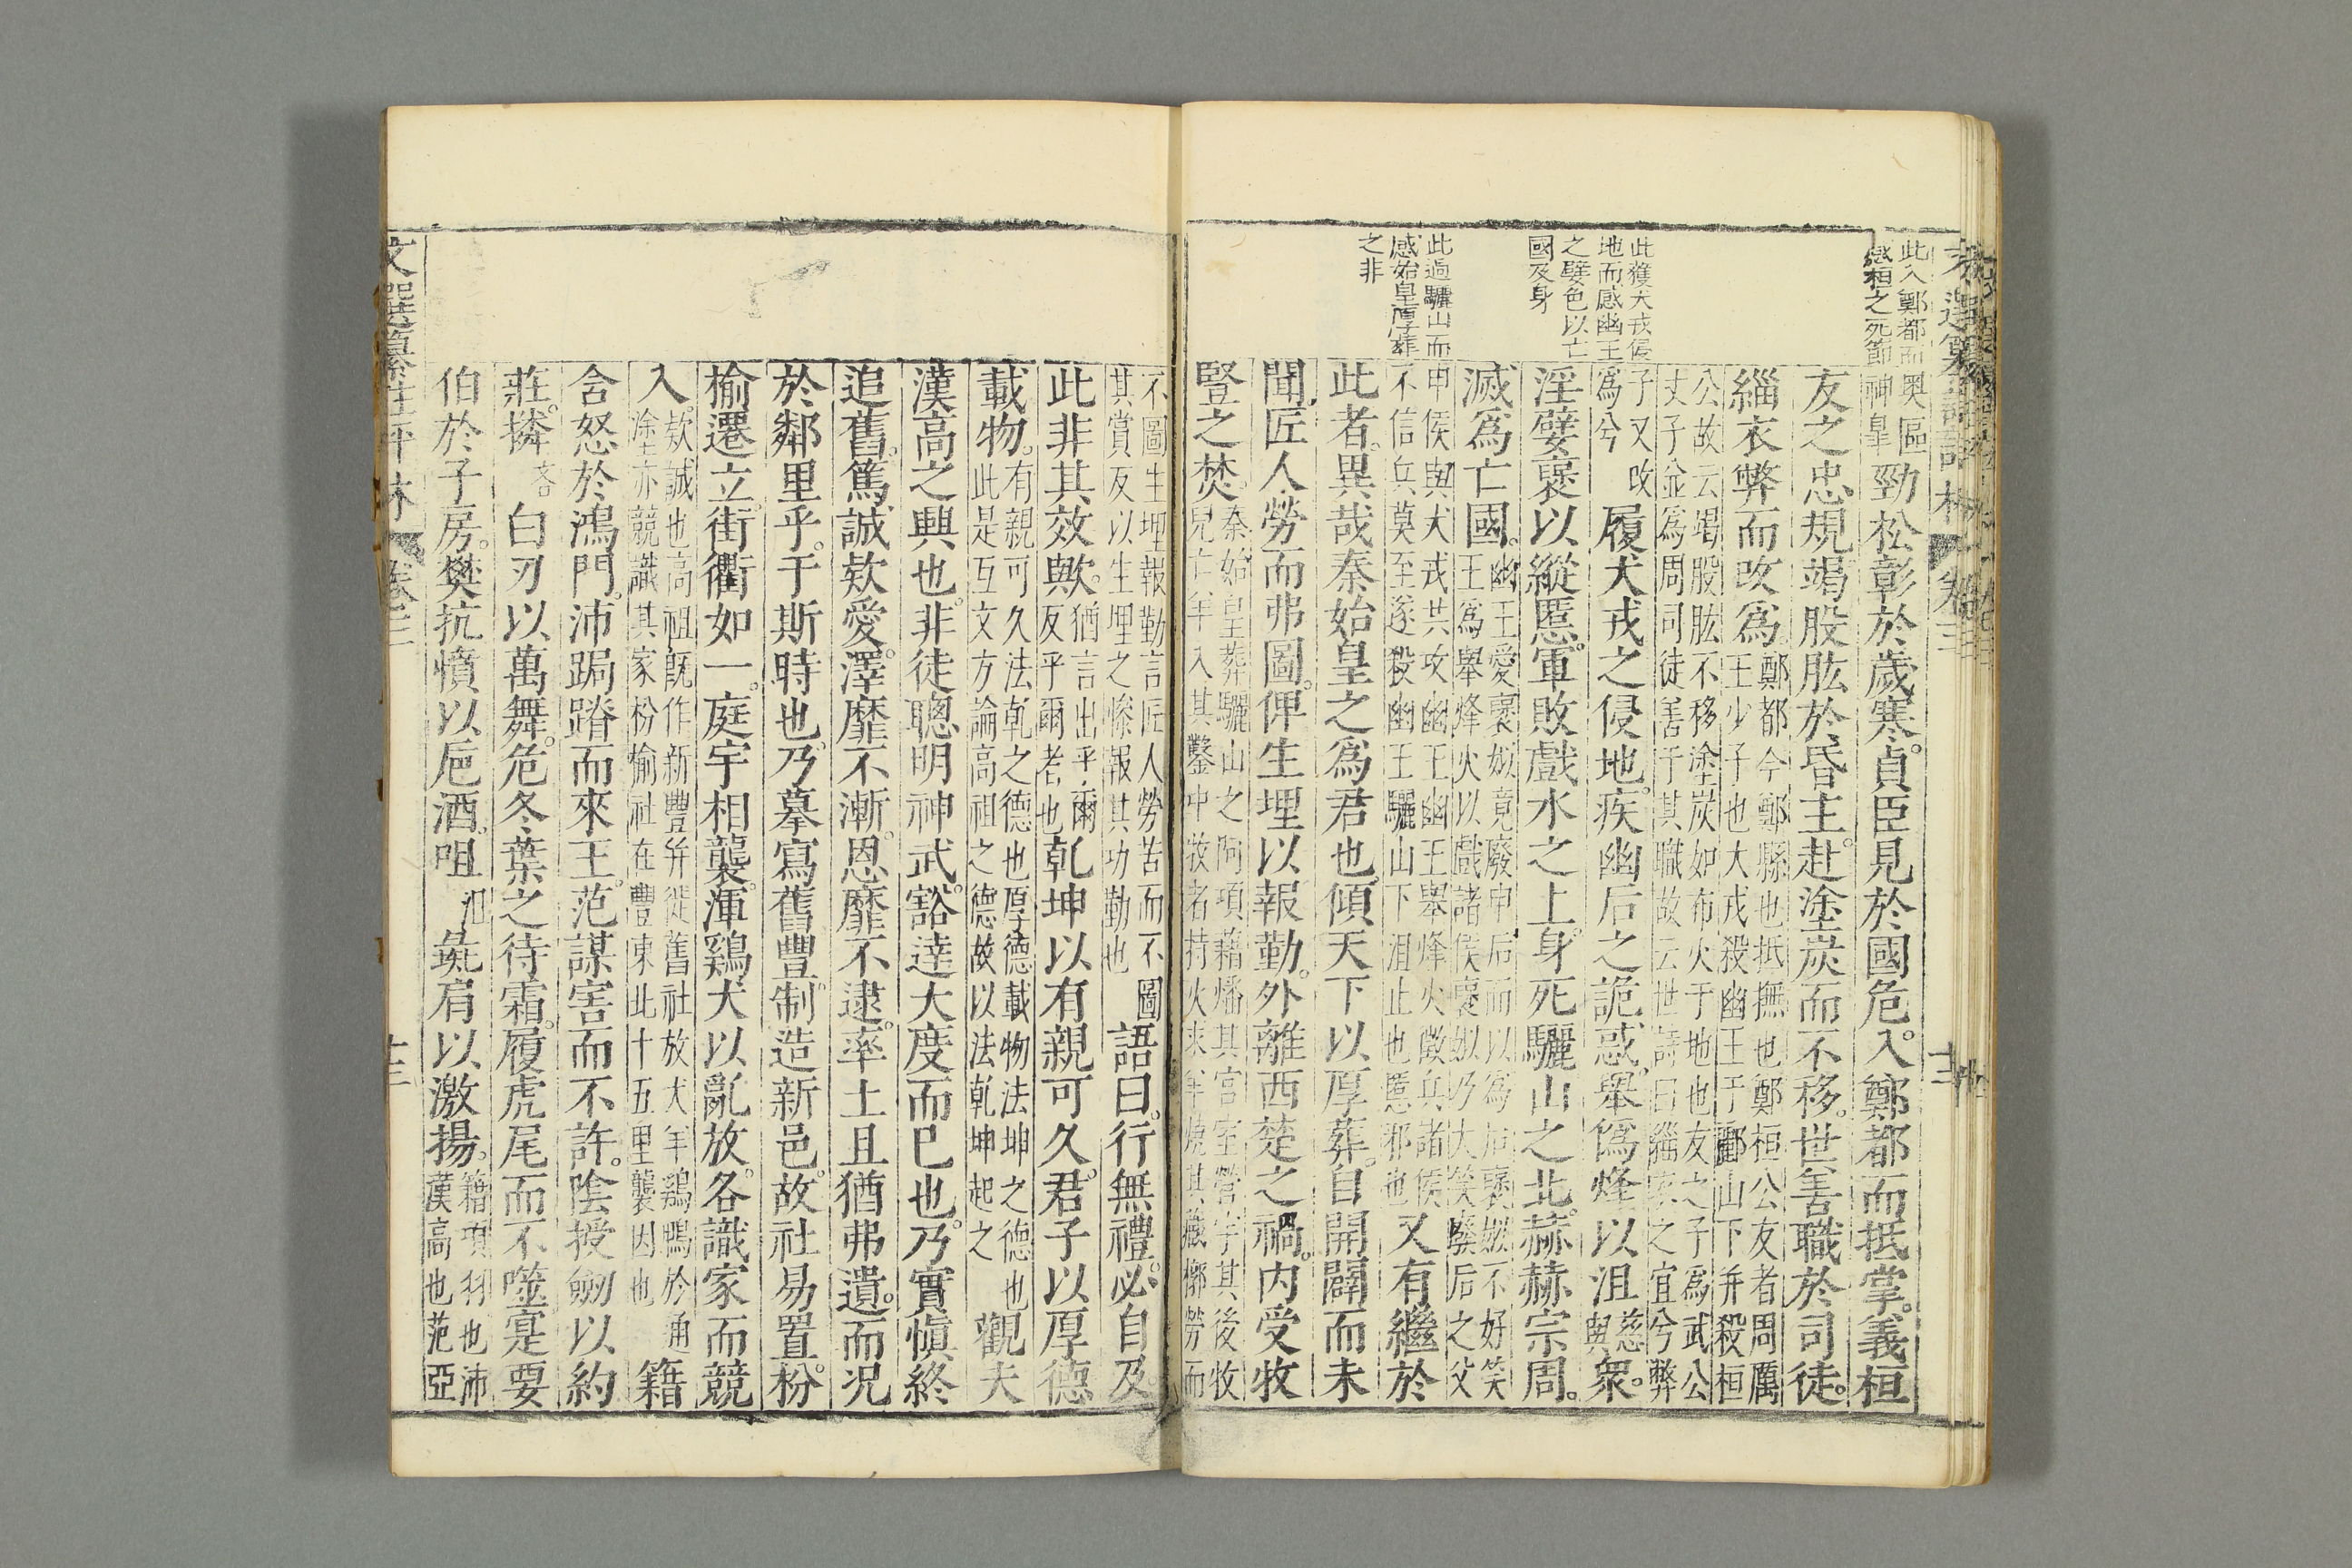 此入鄭都而
感桓之死節
此獲犬戎侵
地而感幽王
之嬖色以亡
國及身
此過驪山而
感始皇厚葬
之非
奧區
神皐
勁松彰於歲寒。貞臣見於國危。入鄭都而抵掌。義桓
友之忠規竭股肱於昏主。赴塗炭而不移。世善職於司徒。
緇衣弊而改爲。
鄭都今鄭縣也抵撫也鄭桓公友者周厲
王少子也犬戎殺幽王于酈山下并殺桓
公故云竭股肱不移塗炭如布火于地也友之子爲武公
丈子並爲周司徒善于其職故云世詩曰緇衣之宜兮弊
子又改
爲兮
履犬戎之侵地。疾幽后之詭惑。舉僞烽以沮
慈
與
衆。
淫嬖褒以縱慝。軍敗戲水之上。身死驪山之北。赫赫宗周。
滅爲亡國。
幽王愛褒姒竟廢申后而以爲后褒姒不好笑
王爲舉烽火以戲諸侯褒姒乃大笑廢后之父
申侯與犬戎共攻幽王幽王舉烽火徵兵諸侯
不信兵莫至遂殺幽王驪山下沮止也慝邪也
又有繼於
此者。異哉秦始皇之爲君也。傾天下以厚葬。自開闢而未
聞。匠人勞而弗圖。俾生埋以報勤。外離西楚之禍。內受牧
豎之焚。
秦始皇葬驪山之阿項藉燔其宮室營宇其後牧
兒亡羊入其鑿中牧者持火求羊燒其藏槨勞而
不圖生埋報勤言匠人勞苦而不圖
其賞反以生埋之慘報其功勤也
語曰。行無禮。必自及。
此非其效歟。
猶言出乎爾
反乎爾者也
乾坤以有親可久。君子以厚德
載物。
有親可久法乾之德也厚德載物法坤之德也
此是互文方論高祖之德故以法乾坤起之
觀夫
漢高之興也。非徒聰明神武。豁達大度而已也。乃實愼終
追舊。篤誠欵愛。澤靡不漸。恩靡不逮。率土且猶弗遺。而況
於鄰里乎。于斯時也。乃摹寫舊豐。制造新邑。故社易置。枌
榆遷立。街衢如一。庭宇相襲。渾鷄犬以亂放。各識家而競
入。
欵誠也高祖既作新豐幷徙舊社放犬羊鷄鴨於通
塗亦競識其家枌榆社在豐東北十五里襲因也
籍
含怒於鴻門。沛跼蹐而來王。范謀害而不許。陰授劒以約
莊。撛
吝
白刃以萬舞。危冬葉之待霜。履虎尾而不噬寔要
伯於子房。樊抗憤以巵酒。咀彘肩以激揚。
籍項羽也沛
漢高也范亞
文選纂註評林
卷三
十三